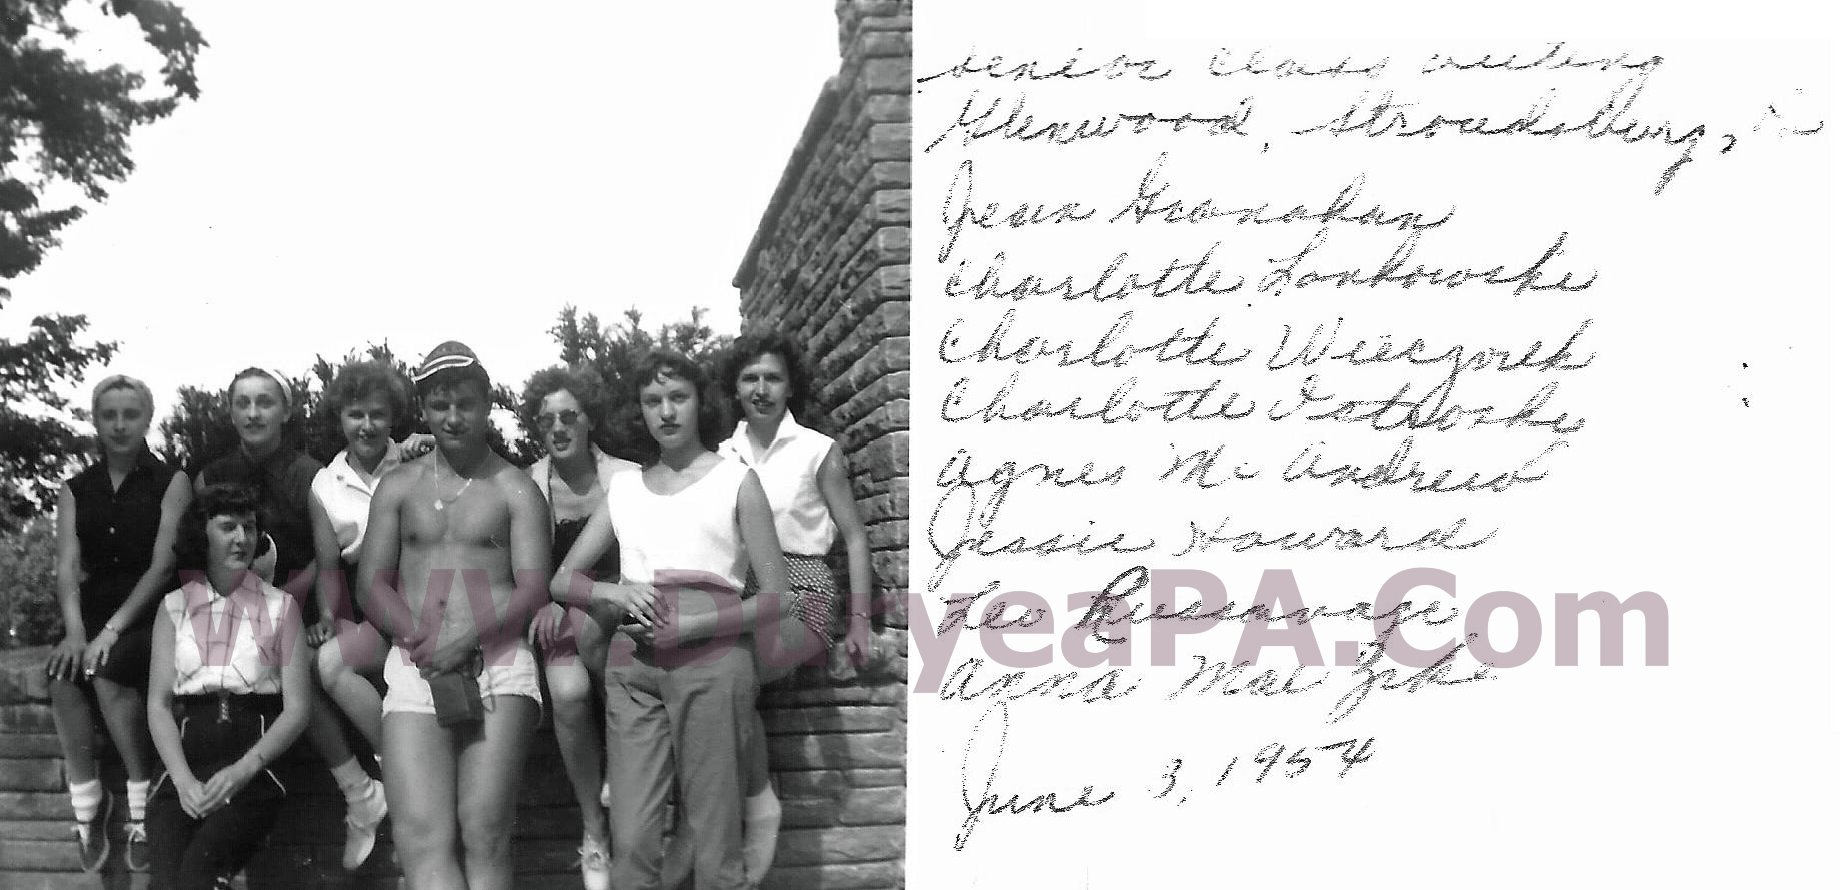 senior class outing
Glenwood, Stroudsburg, Pa
Jean Granahan
Charlotte Lonkowske
Charlotte Wieczorek
Charlotte Ostroske
Agnes Mc Andrew
Jessie Howard
Leo Russavage
Anna Mae Zpke
June 3, 1954
WWW.DuryeaPA.Com